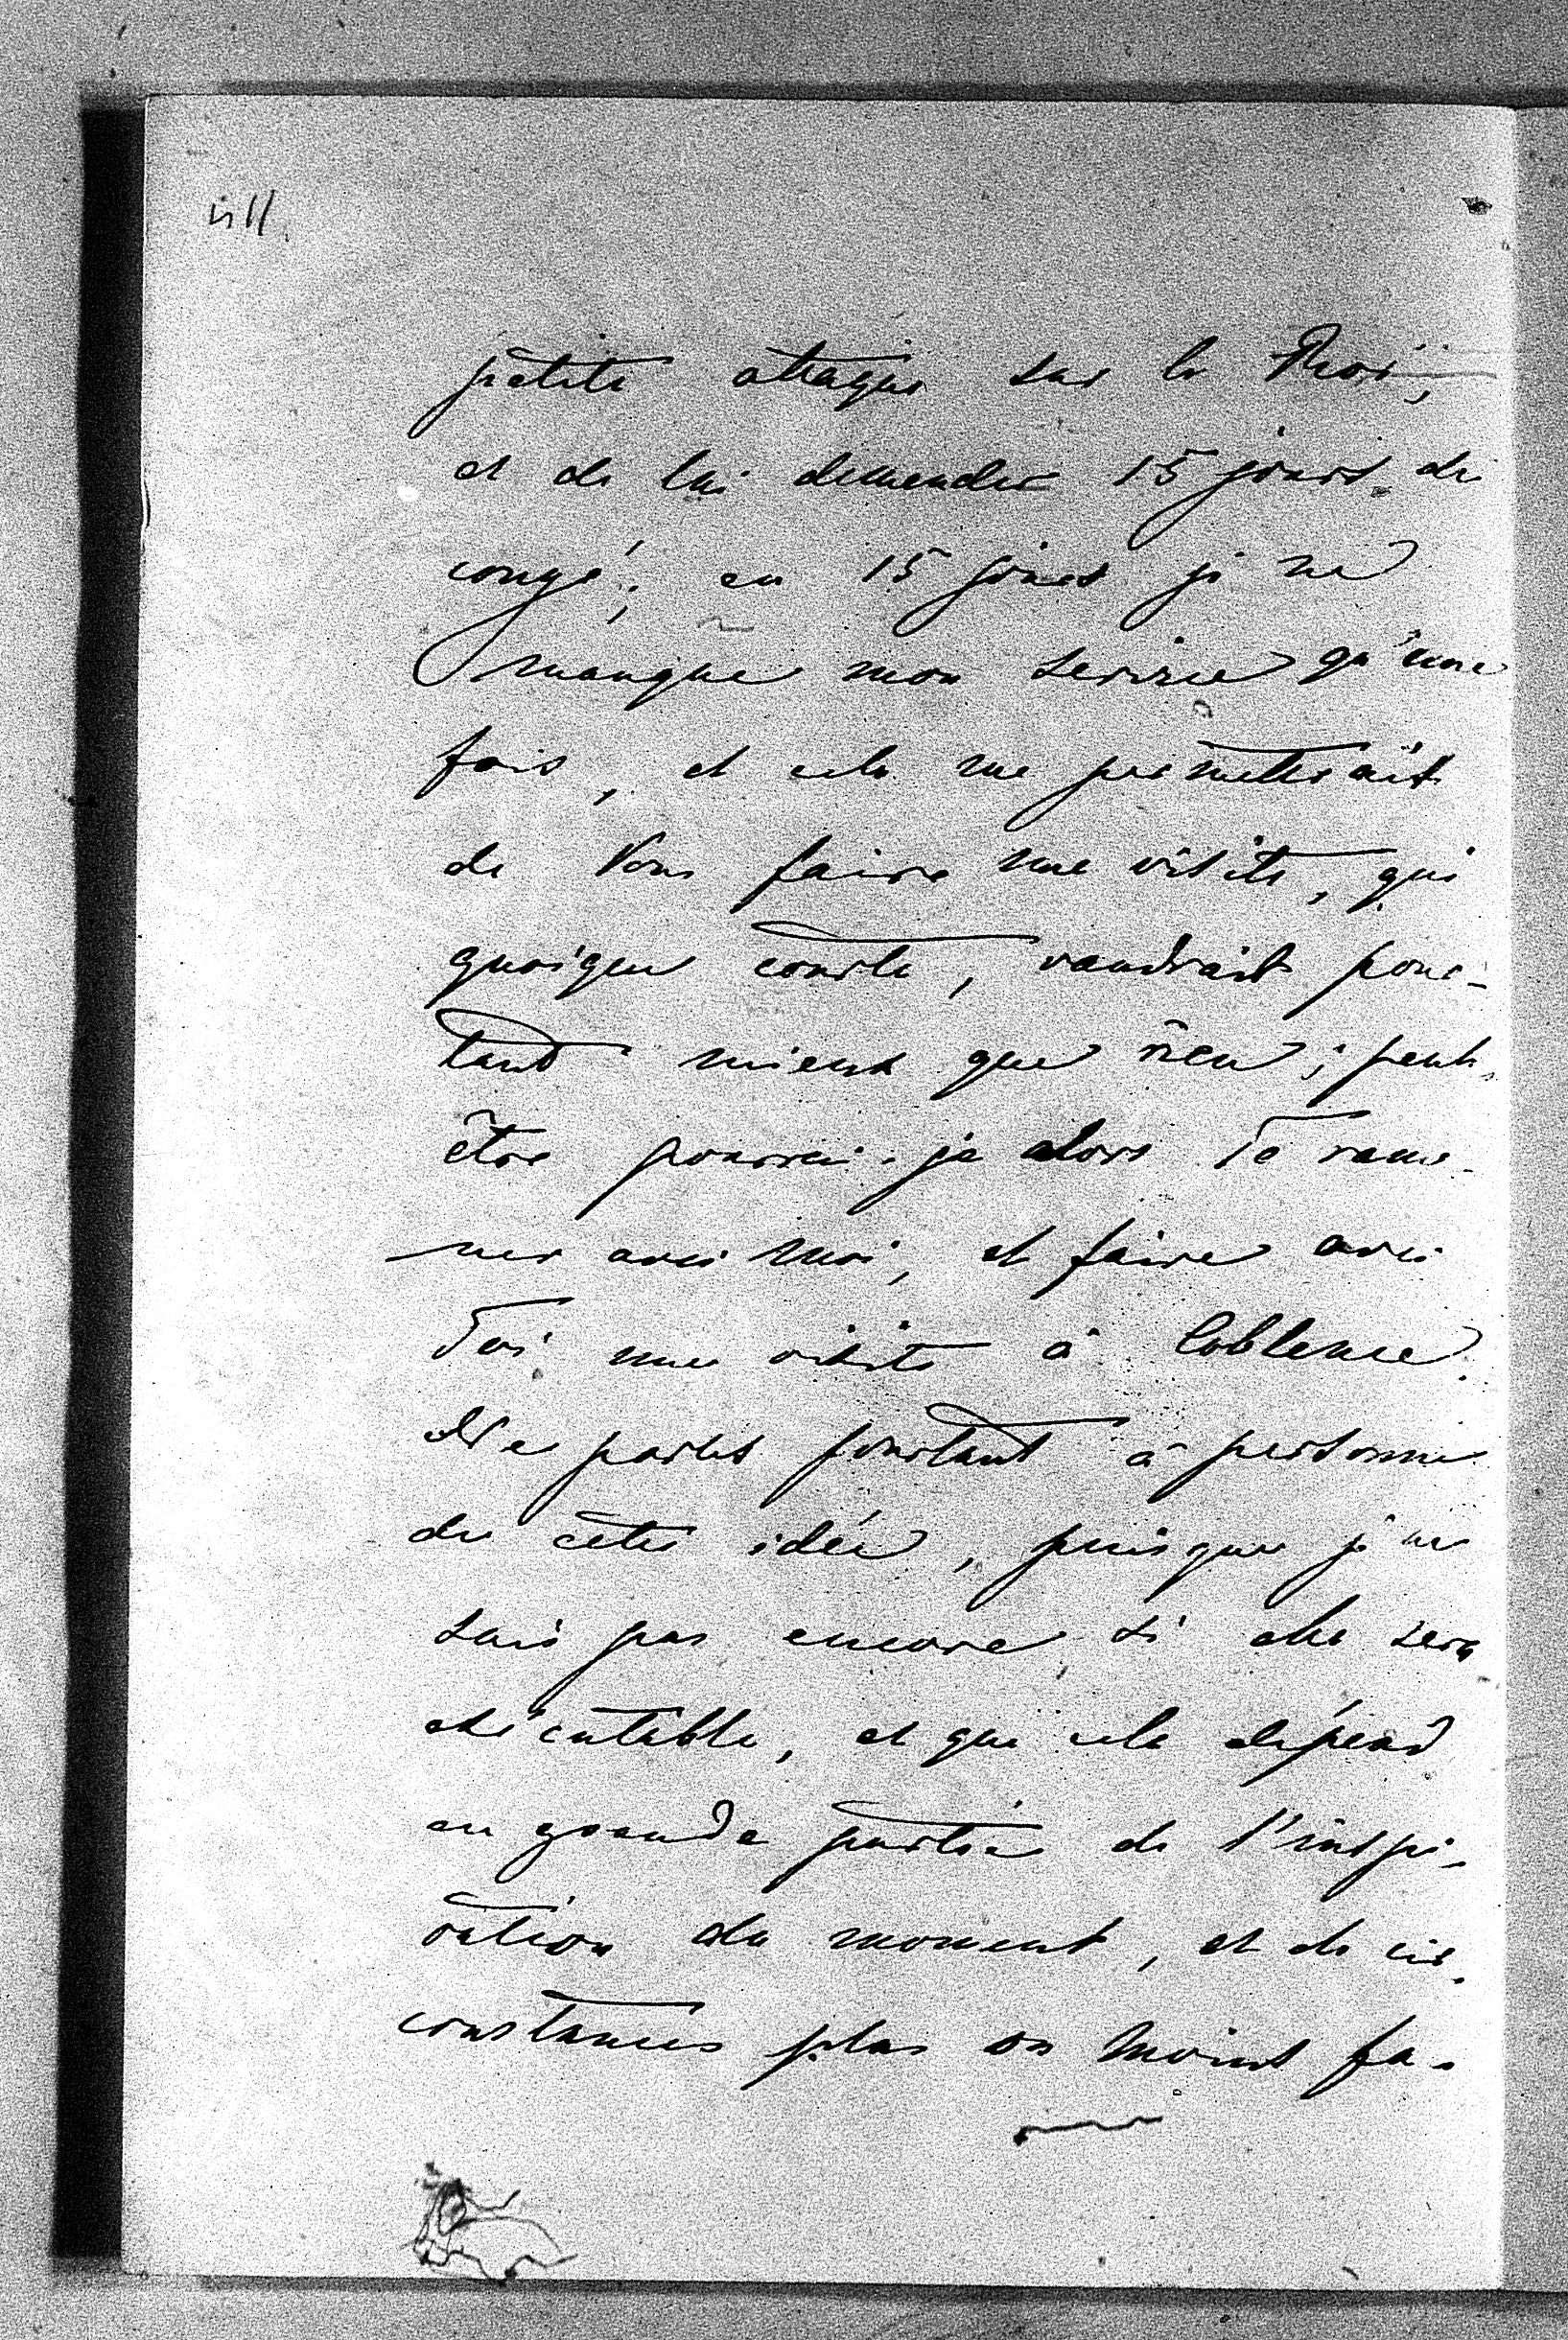 petite attaque sur le Roi,
et de lui demander 15 jours de
congé; en 15 jours je ne
manque mon service qu'une
fois, et cela me permettrait
de Vous faire une visite, qui
quoique courte, vaudrait pour-
tant mieux que rien; peut-
être pourrai-je alors Te rame-
ner avec moi, et faire avec
Toi une visite à Coblence.
Ne parles pourtant à personne
de cette idée, puisque je ne
sais pas encore, si elle sera
exécutable, et que cela dépend
en grande partie de l'inspi-
ration du moment, et de cir-
constances plus ou moins fa-